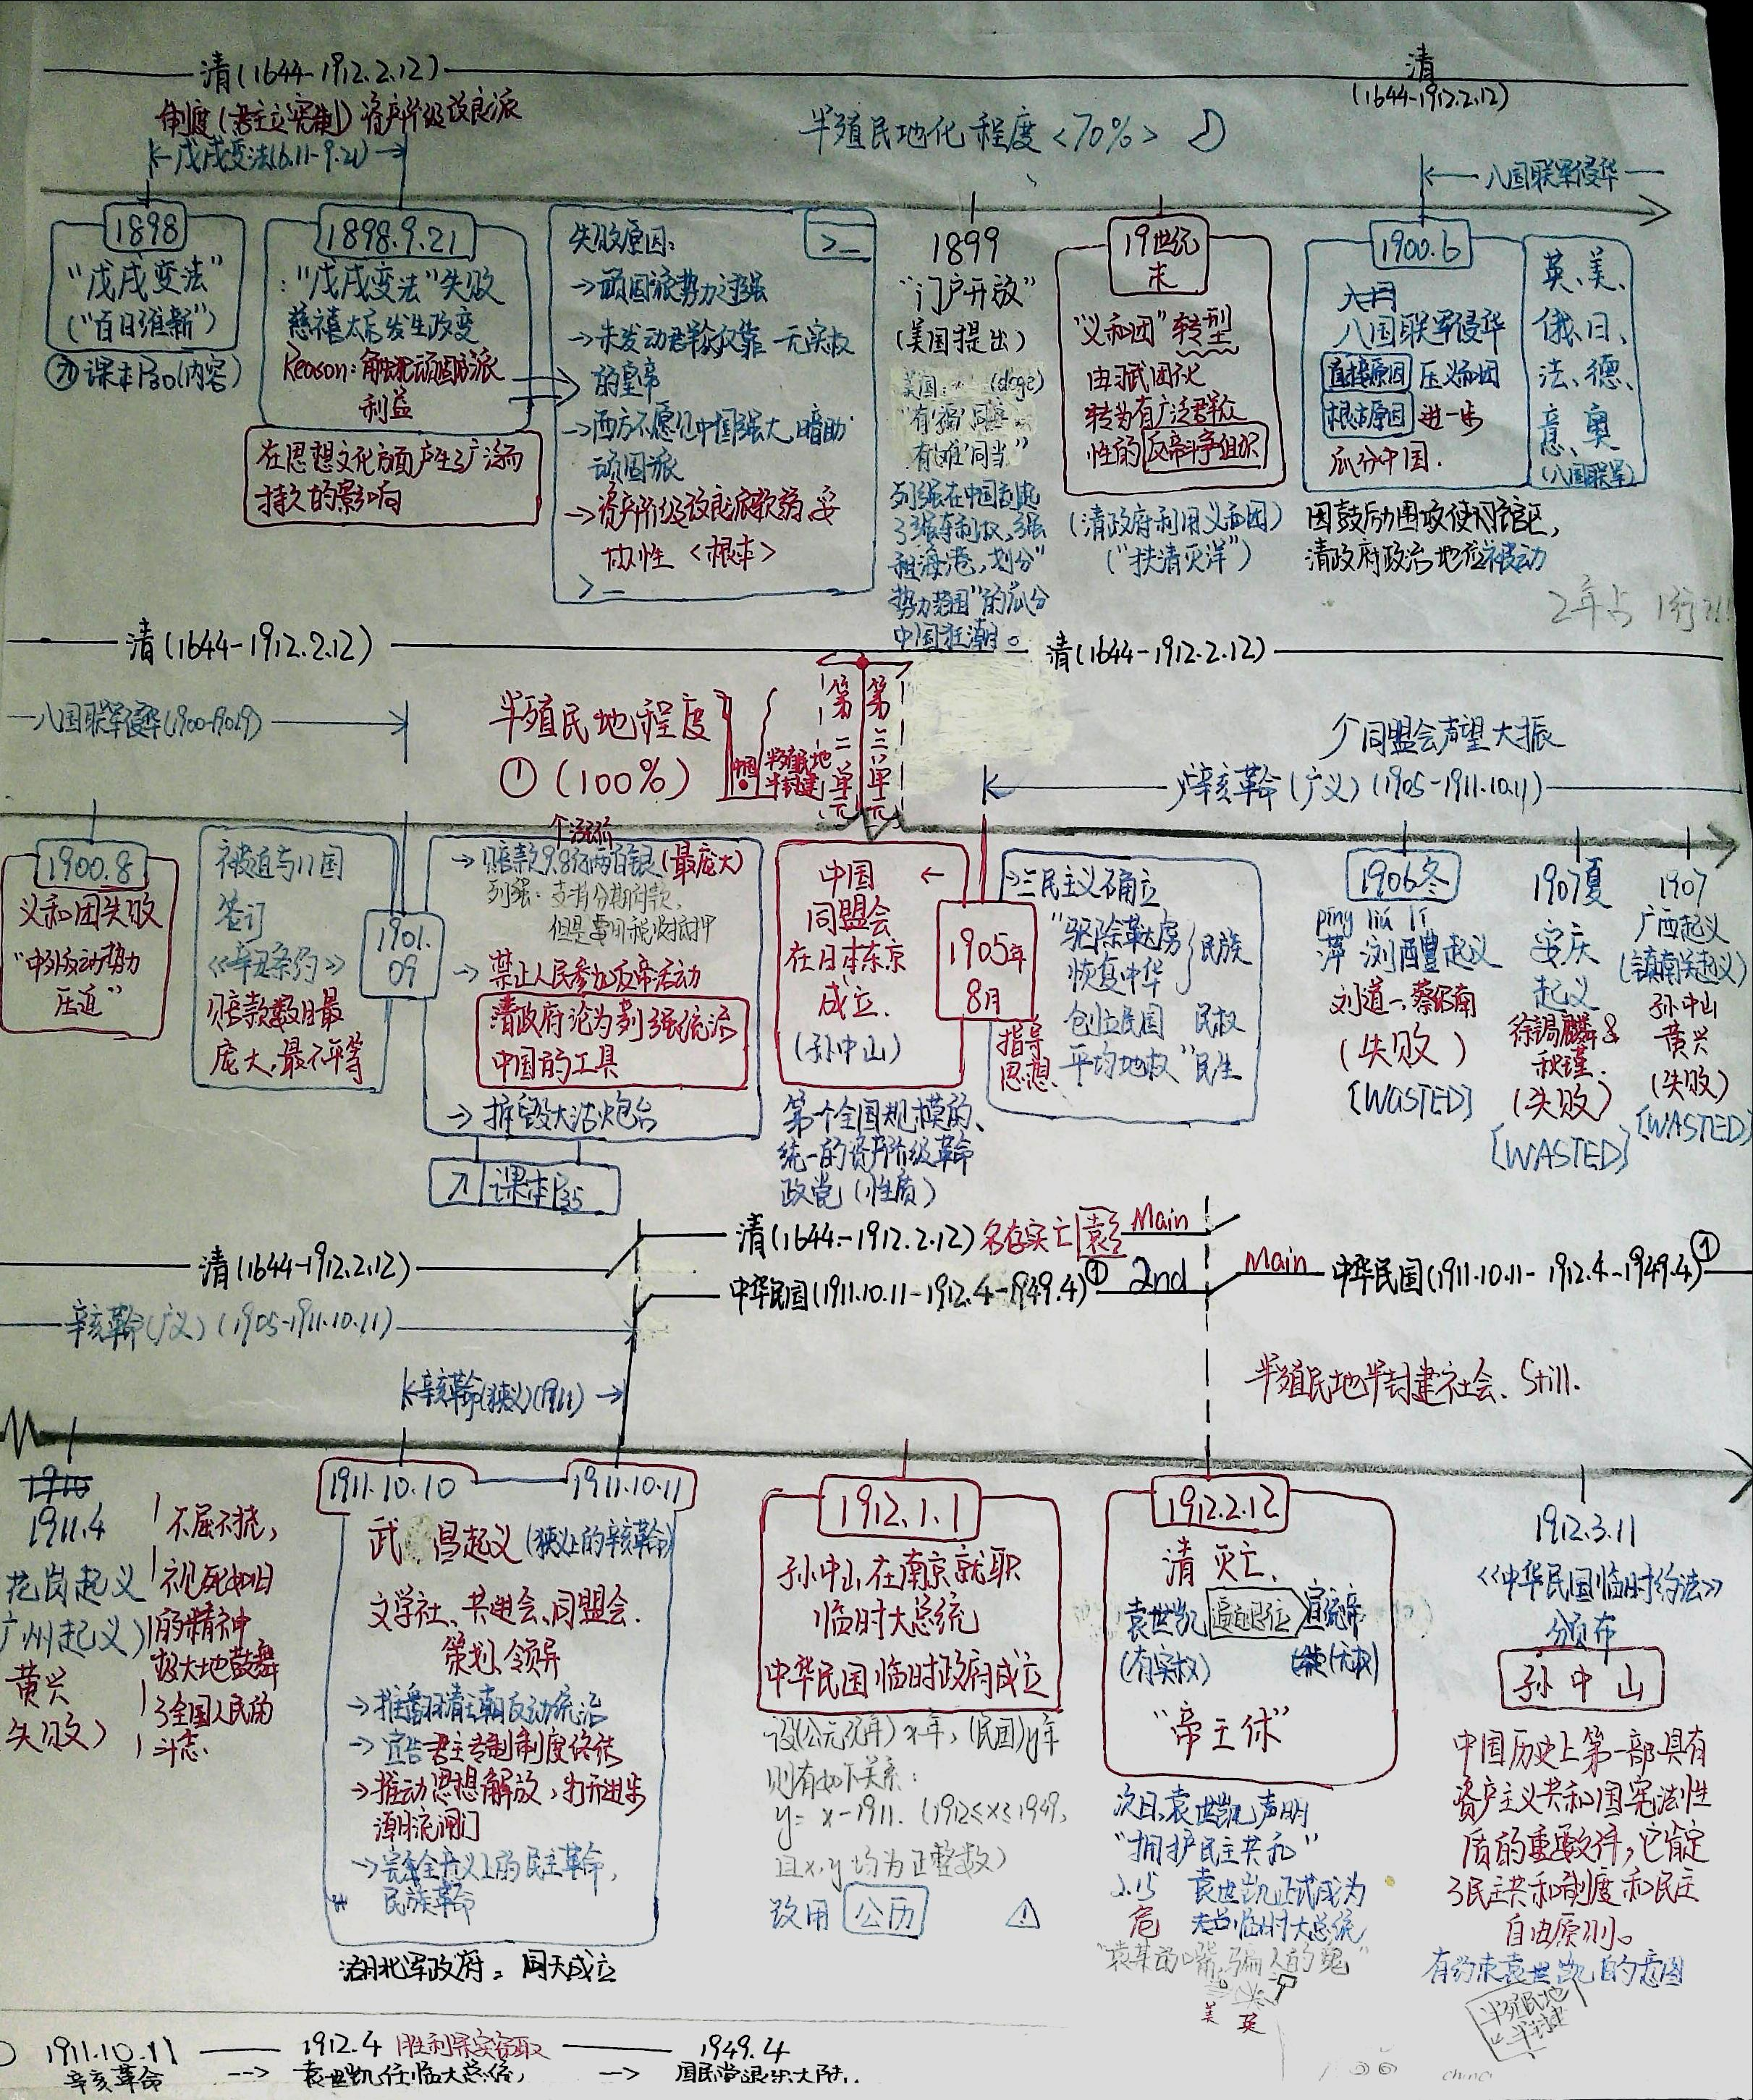 清(1644-1912.2.12)
清
(1644-1912.2.12)
制度(君主立宪制) 资产阶级改良派
戊戌变法(6.11-9.21)
半殖民地化程度<70%>
八国联军侵华
1898
"戊戌变法"
("百日维新")
课本P30(内容)
1898.9.21
:"戊戌变法"失败
慈禧太后发生政变
Reason:触犯顽固派
利益
在思想文化方面产生了广泛而
持久的影响
失败原因:
→顽固派势力过强
→未发动群众仅靠一无实权
的皇帝
→西方不愿见中国强大,暗助
顽固派
→资产阶级改良派软弱妥
协性<根本>
1899
"门户开放"
(美国提出)
美国: (doge)
"有'福'同享
有'难'同当"
列强在中国刮起
了强夺利权,强
租海港,划分"
势力范围"的瓜分
中国狂潮。
19世纪
末
"义和团"转型
由习武团伙
转为有广泛群众
性的反帝斗争组织
(清政府利用义和团)
("扶清灭洋")
1900.6
八国联军侵华
直接原因 压义和团
根本原因 进一步
瓜分中国.
英、美、
俄、日、
法、德、
意、奥
(八国联军)
因鼓励围攻使馆区,
清政府政治地位被动
2年占1行
清(1644-1912.2.12)
清(1644-1912.2.12)
八国联军侵华(1900-1901.9)
半殖民地程度
①(100%)
中国
半殖民地
半封建
第二单元
第三单元
个同盟会声望大振
辛亥革命(广义)(1905-1911.10.11)
1900.8
义和团失败
"中外反动势力
压迫"
被迫与11国
签订
《辛丑条约》
赔款数目最
庞大,最不平等
1901.
09
→赔款9.8亿两白银(最庞大)
列强:支持分期付款,
但是要用税收抵押
→禁止人民参加反帝活动
清政府沦为列强统治
中国的工具
→拆毁大沽炮台
课本P35
中国
同盟会
在日本东京
成立.
(孙中山)
1905年
8月
第一个全国规模的、
统一的资产阶级革命
政党(性质)
→三民主义确立
"驱除鞑虏
恢复中华 民族
创立民国 民权
平均地权" 民生
指导
思想
1906冬
píng liú lǐ
萍浏醴起义
刘道一、蔡绍南
(失败)
[WASTED]
1907夏
安庆
起义
徐锡麟&
秋瑾.
(失败)
[WASTED]
1907
广西起义
(镇南关起义)
孙中山
黄兴
(失败)
[WASTED]
清(1644-1912.2.12)
清(1644-1912.2.12)名存实亡 袁 Main
中华民国(1911.10.11-1912.4-1949.4)① 2nd
Main 中华民国(1911.10.11-1912.4-1949.4)①
辛亥革命(广义)(1905-1911.10.11)
辛亥革命(狭义)(1911)
半殖民地半封建社会、Still.
1911.4
花岗起义
广州起义)
黄兴
失败)
不屈不挠,
视死如归
的精神
极大地鼓舞
了全国人民的
斗志.
1911.10.10
1911.10.11
武昌起义(狭义上的辛亥革命)
文学社、共进会、同盟会.
策划、领导
→推翻清王朝反动统治
→宣告君主专制制度终结
→推动思想解放,打开进步
潮流闸门
→完全意义上的民主革命,
民族革命
湖北军政府:同天成立
1912.1.1
孙中山在南京就职
临时大总统
中华民国临时政府成立
设(公元纪年)x年,(民国)y年
则有如下关系:
y=x-1911. (1912≤x≤1949,
且x,y均为正整数)
改用 公历
1912.2.12
清灭亡.
袁世凯 逼迫退位 宣统帝
(有实权) (无权)
"帝王休"
次日,袁世凯声明
"拥护民主共和"
2.15 袁世凯正式成为
临时大总统
危
"袁某的嘴,骗人的鬼"
美 英
1912.3.11
《中华民国临时约法》
颁布
孙中山
中国历史上第一部具有
资产主义共和国宪法性
质的重要文件,它肯定
了民主共和制度和民主
自由原则。
有约束袁世凯的意图
半殖民地
半封建
1911.10.11 —— 1912.4 胜利果实窃取 —— 1949.4
辛亥革命 --> 袁世凯任临大总统, --> 国民党退出大陆..
china